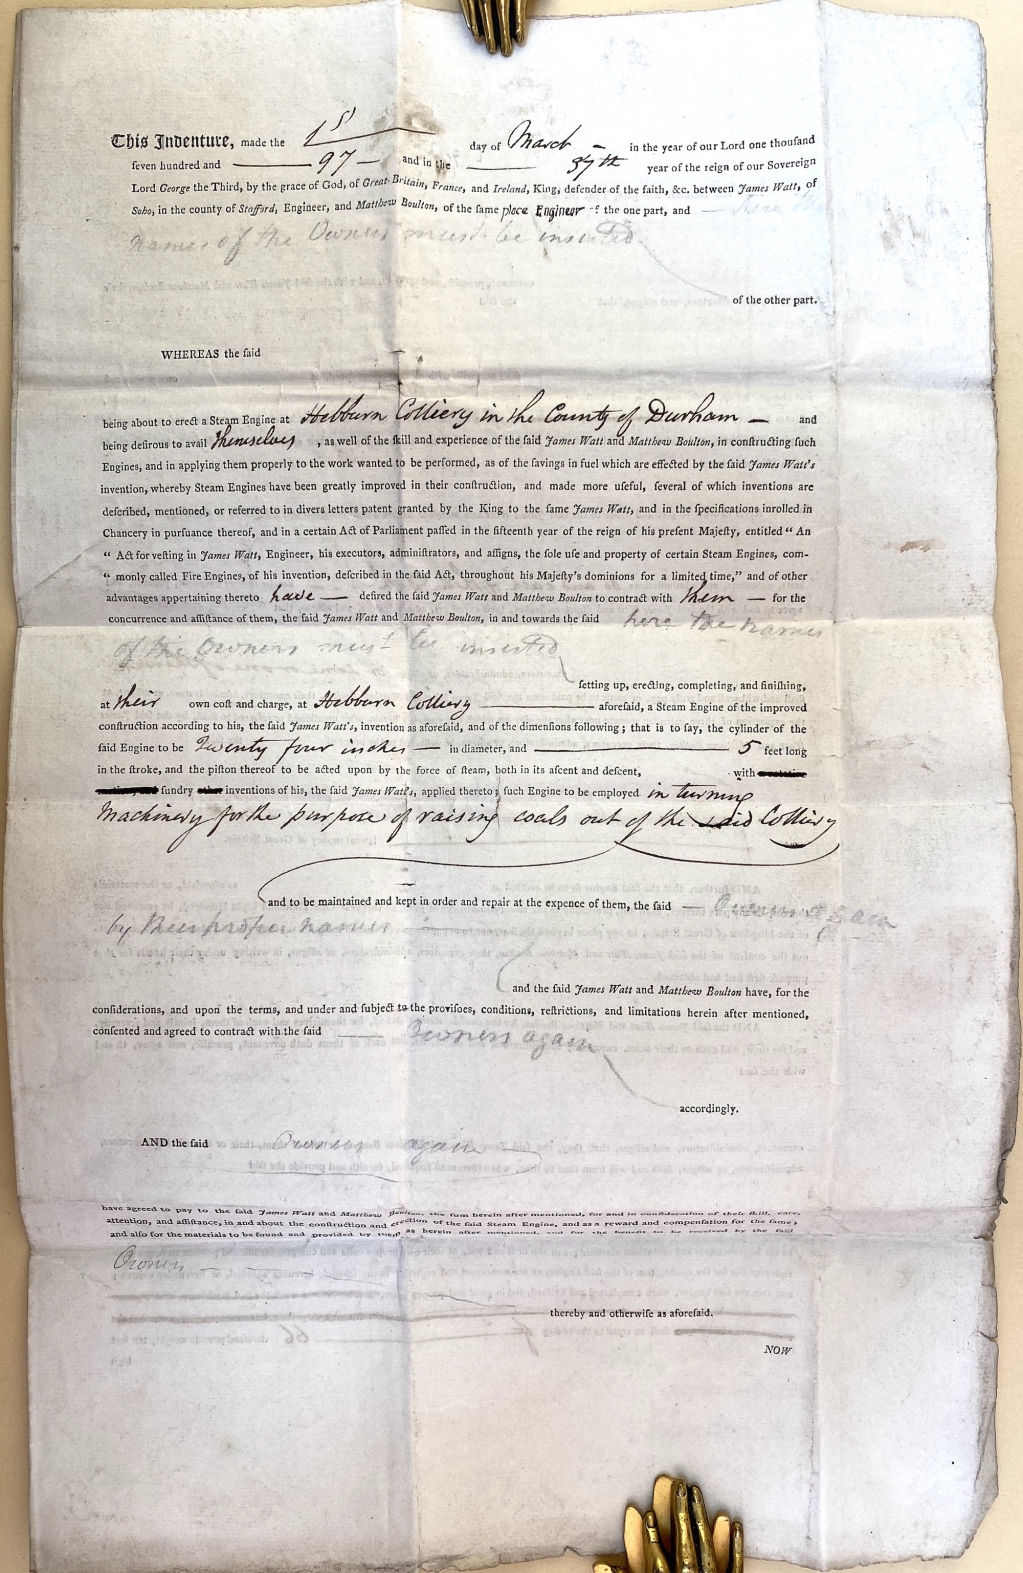 This Indenture, made the 1st day of March – in the year of our Lord one thousand
ſeven hundred and ——— 97 – and in the ——— 37th year of the reign of our Sovereign
Lord George the Third, by the grace of God, of Great-Britain, France, and Ireland, King, defender of the faith, &c. between James Watt, of
Soho, in the county of Stafford, Engineer, and Matthew Boulton, of the ſame place Engineer of the one part, and —
names of the Owners must be inserted
of the other part.
WHEREAS the ſaid
being about to erect a Steam Engine at Hebburn Colliery in the County of Durham — and
being deſirous to avail themselves , as well of the ſkill and experience of the ſaid James Watt and Matthew Boulton, in conſtructing ſuch
Engines, and in applying them properly to the work wanted to be performed, as of the ſavings in fuel which are effected by the ſaid James Watt's
invention, whereby Steam Engines have been greatly improved in their conſtruction, and made more uſeful, ſeveral of which inventions are
deſcribed, mentioned, or referred to in divers letters patent granted by the King to the ſame James Watt, and in the ſpecifications inrolled in
Chancery in purſuance thereof, and in a certain Act of Parliament paſſed in the fifteenth year of the reign of his preſent Majeſty, entitled " An
" Act for veſting in James Watt, Engineer, his executors, adminiſtrators, and aſſigns, the ſole uſe and property of certain Steam Engines, com-
" monly called Fire Engines, of his invention, deſcribed in the ſaid Act, throughout his Majeſty's dominions for a limited time," and of other
advantages appertaining thereto have — deſired the ſaid James Watt and Matthew Boulton to contract with them — for the
concurrence and aſſiſtance of them, the ſaid James Watt and Matthew Boulton, in and towards the ſaid here the names
of the Owners must be inserted
ſetting up, erecting, completing, and finiſhing,
at their own coſt and charge, at Hebburn Colliery ——— aforeſaid, a Steam Engine of the improved
conſtruction according to his, the ſaid James Watt's, invention as aforeſaid, and of the dimenſions following; that is to ſay, the cylinder of the
ſaid Engine to be Twenty four inches — in diameter, and ——— 5 feet long
in the ſtroke, and the piſton thereof to be acted upon by the force of ſteam, both in its aſcent and deſcent, with
ſundry inventions of his, the ſaid James Watt's, applied thereto; ſuch Engine to be employed in turning
Machinery for the purpose of raising coals out of the said Colliery
and to be maintained and kept in order and repair at the expence of them, the ſaid — Owners again
by their proper names
and the ſaid James Watt and Matthew Boulton have, for the
conſiderations, and upon the terms, and under and ſubject to the proviſoes, conditions, reſtrictions, and limitations herein after mentioned,
conſented and agreed to contract with the ſaid — Owners again
accordingly.
AND the ſaid Owners again
have agreed to pay to the ſaid James Watt and Matthew Boulton, the ſum herein after mentioned, for and in conſideration of their ſkill, care,
attention, and aſſiſtance, in and about the conſtruction and erection of the ſaid Steam Engine, and as a reward and compenſation for the ſame,
and alſo for the materials to be found and provided by them as herein after mentioned, and for the benefit to be received by the ſaid
Owners
thereby and otherwiſe as aforeſaid.
NOW